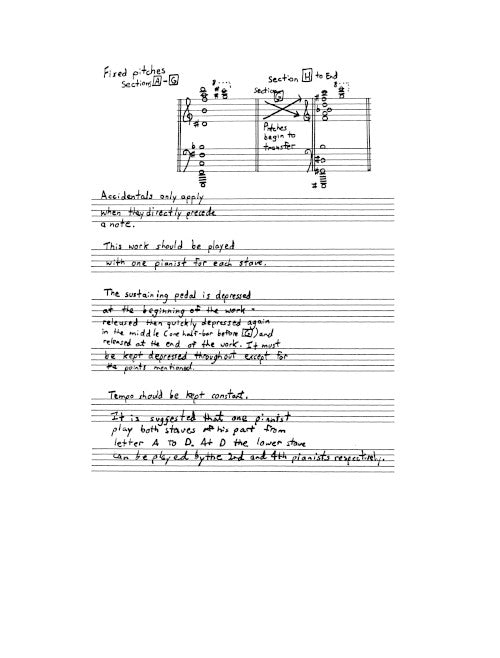 Fixed pitches
Sections A - G
Section H to End
Section G
Pitches
begin to
transfer
Accidentals only apply
when they directly precede
a note.
This work should be played
with one pianist for each stave.
The sustaining pedal is depressed
at the beginning of the work -
released then quickly depressed again
in the middle (one half-bar before G) and
released at the end of the work. It must
be kept depressed throughout except for
the points mentioned.
Tempo should be kept constant.
It is suggested that one pianist
play both staves of his part from
letter A to D. At D the lower stave
can be played by the 2nd and 4th pianists respectively.